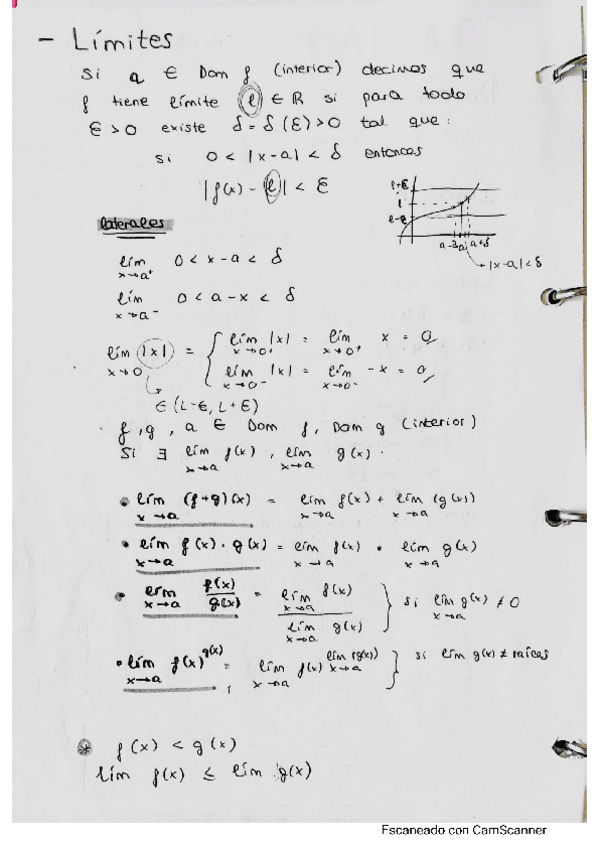 - Límites
Si a ∈ Dom f (interior) decimos que
f tiene límite l ∈ ℝ si para todo
ε > 0 existe δ = δ(ε) > 0 tal que:
si 0 < |x-a| < δ entonces
|f(x) - l| < ε
l+ε
l
l-ε
a-δ a a+δ
|x-a| < δ
laterales
lím x→a⁺ 0 < x-a < δ
lím x→a⁻ 0 < a-x < δ
lím x→0 |x| = { lím x→0⁺ |x| = lím x→0⁺ x = 0
lím x→0⁻ |x| = lím x→0⁻ -x = 0
∈ (L-ε, L+ε)
f, g, a ∈ Dom f, Dom g (interior)
Si ∃ lím x→a f(x), lím x→a g(x).
• lím x→a (f+g)(x) = lím x→a f(x) + lím x→a (g(x))
• lím x→a f(x) · g(x) = lím x→a f(x) · lím x→a g(x)
• lím x→a f(x)/g(x) = lím x→a f(x) / lím x→a g(x) } si lím x→a g(x) ≠ 0
• lím x→a f(x)^g(x) = lím x→a f(x)^lím x→a (g(x)) } si lím g(x) ≠ raíces
* f(x) < g(x)
lím f(x) ≤ lím g(x)
Escaneado con CamScanner